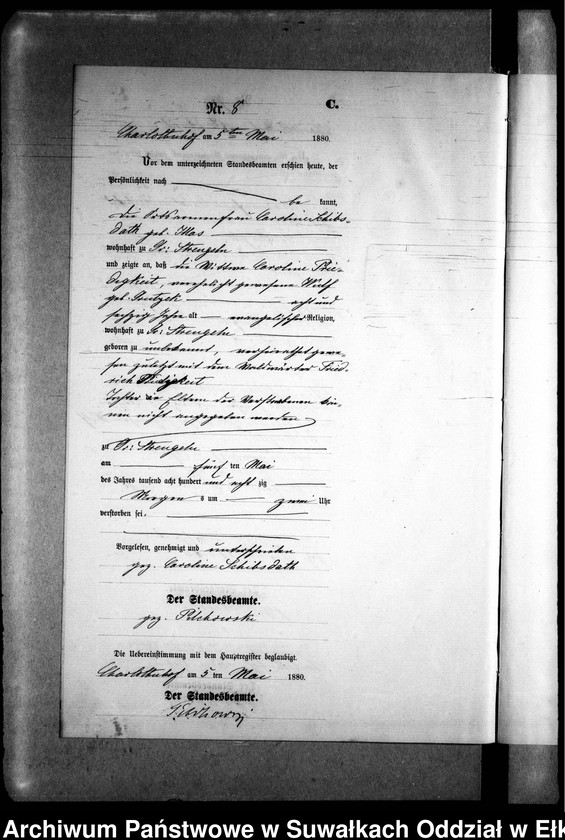 Nr. 8
C.
Charlottenhof am 5ten Mai 1880.
Vor dem unterzeichneten Standesbeamten erschien heute, der
Persönlichkeit nach
be kannt,
die Ortsarmenfrau Caroline Schibs-
dath geb.
wohnhaft zu Gr: Strengeln
und zeigte an, daß die Wittwe Caroline Prei-
digkeit, verehelicht gewesene
geb. acht und
sechzig Jahre alt evangelischer Religion,
wohnhaft zu Gr: Strengeln
geboren zu unbekannt, verheirathet gewe-
sen zuletzt mit dem Waldwärter Fried-
rich
Tochter die Eltern der Verstorbenen kön-
nen nicht angegeben werden
zu Gr: Strengeln
am fünf ten Mai
des Jahres tausend acht hundert und acht zig
Morgen s um zwei Uhr
verstorben sei.
Vorgelesen, genehmigt und unterschrieben
gez. Caroline Schibsdath
Der Standesbeamte.
gez. Pilchowski
Die Uebereinstimmung mit dem Hauptregister beglaubigt.
Charlottenhof am 5 ten Mai 1880.
Der Standesbeamte.
Pilchowski
Archiwum Państwowe w Suwałkach Oddział w Ełk